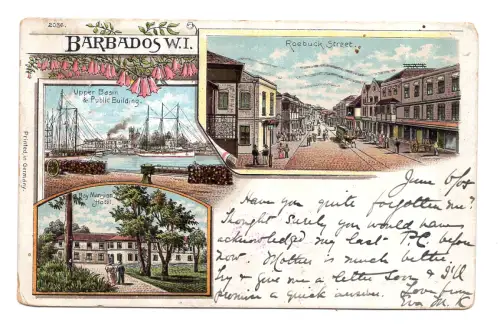 2036.
BARBADOS W.I.
Roebuck Street.
Upper Basin
& Public Building.
Printed in Germany.
Hotel
June 6/05
Have you quite forgotten me?
Thought surely you would have
acknowledged my last P.C. before
now. Mother is much better
Try & give me a letter soon & I'll
promise a quick answer. Love from
Eva M. K